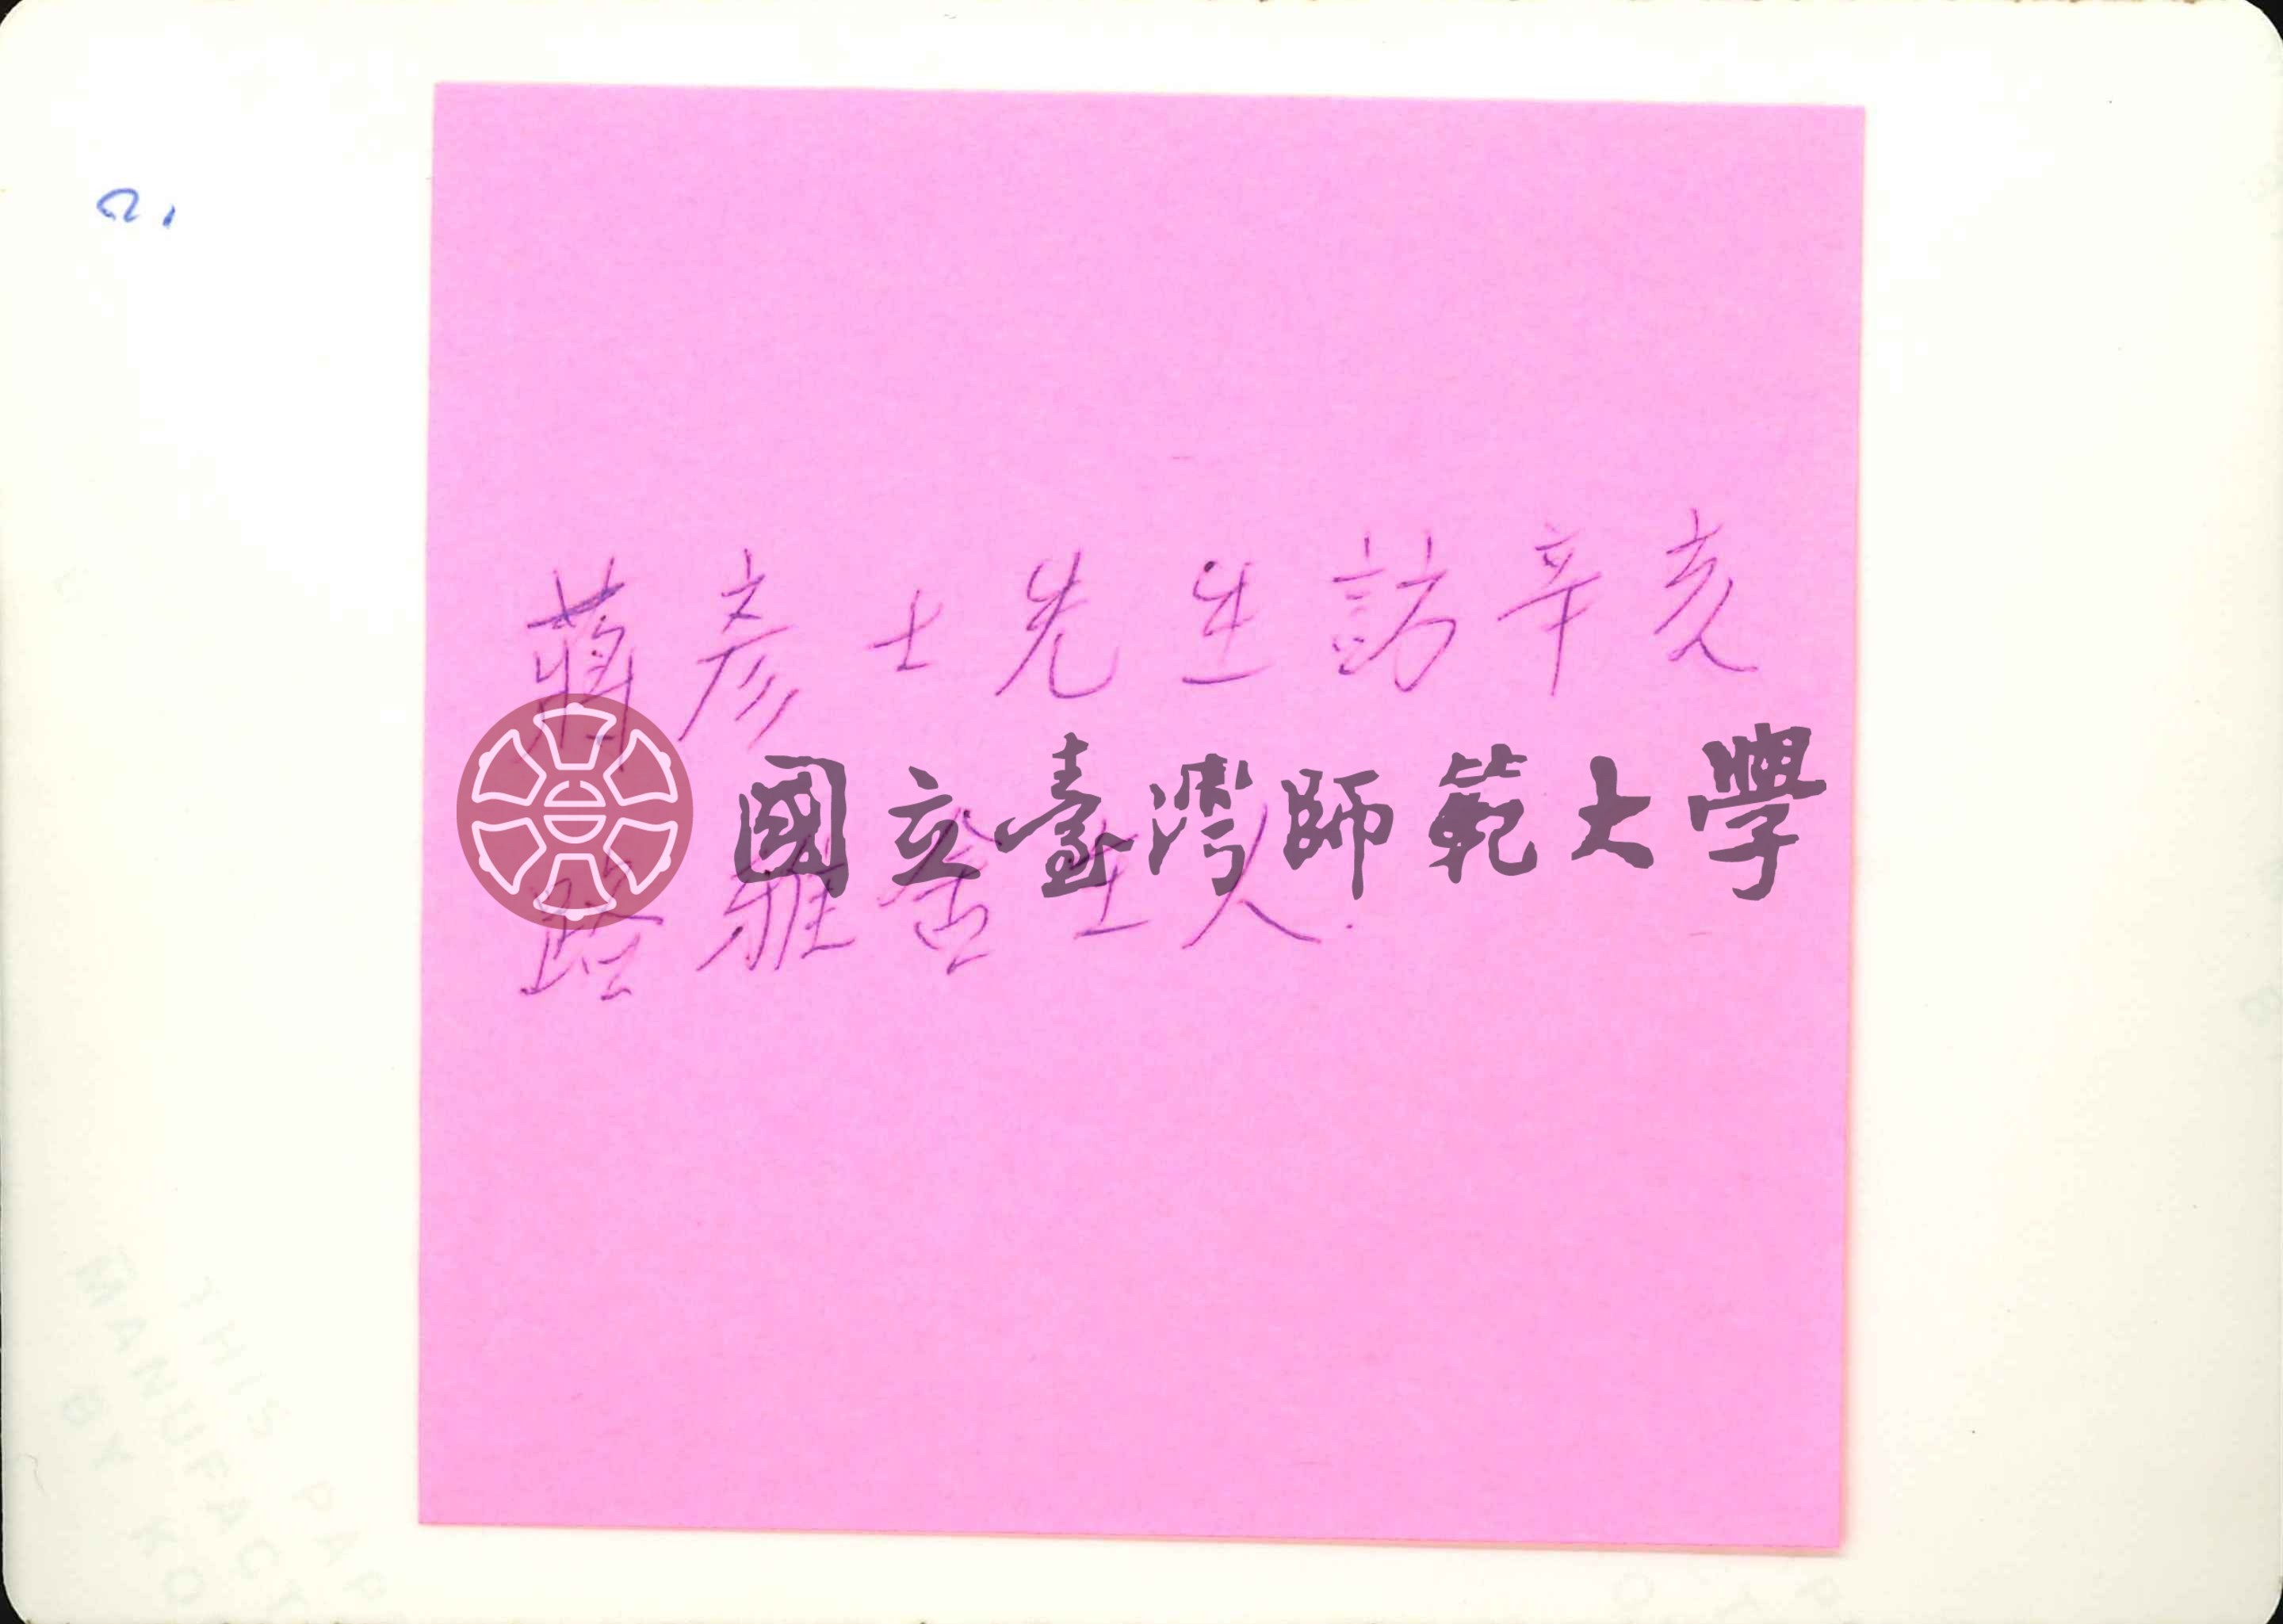 2.
蔣彥士先生訪辛亥
國立臺灣師範大學
路雅舍主人.
THIS PAP
MANUFACT
BY KO